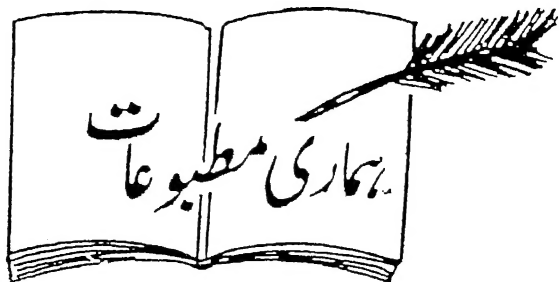 ہماری مطبوعات